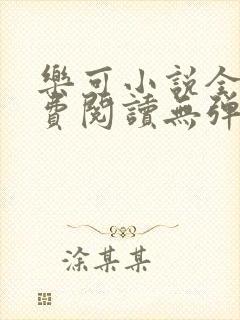 樂可小說全
費閱讀無彈
涂某某